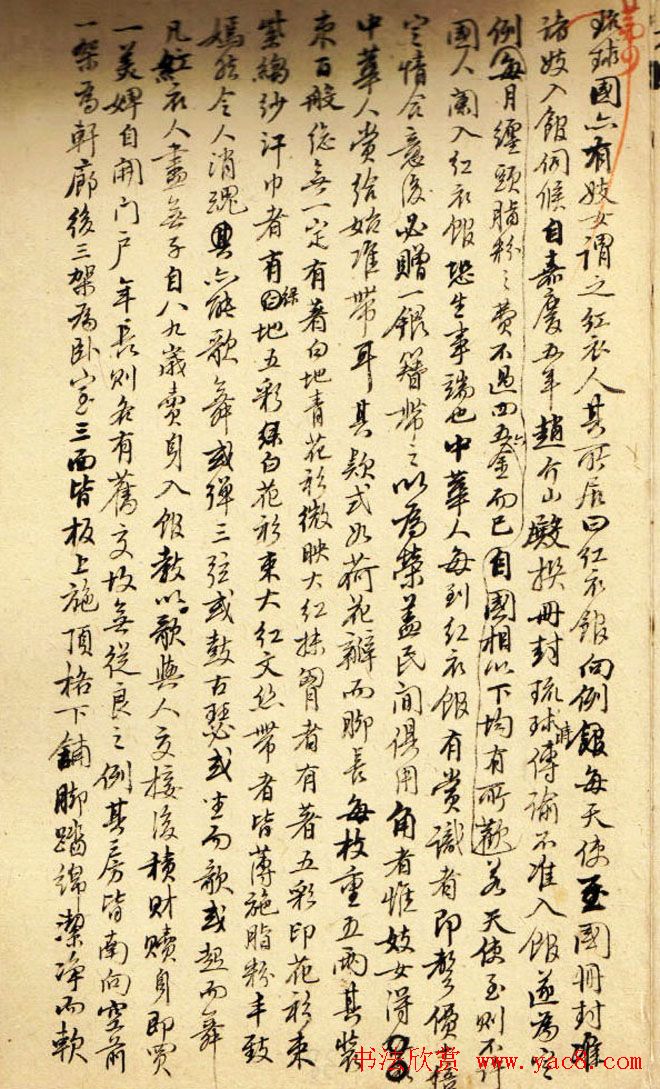 琉球國亦有妓女謂之紅衣人其所居曰紅衣館向例每天使至國冊封
諸妓入館伺候自嘉慶五年趙介山殿撰冊封琉球時傳諭不准入館遂為定
例每月纏頭脂粉之費不過四五金而已自國相以下均有所歡若天使至則不許
國人闌入紅衣館恐生事端也中華人每到紅衣館有賞識者即聲價倍
定情合意後必贈一銀簪帶之以為榮蓋民間俱用角者惟妓女得
中華人賞給始准帶耳其款式如荷花瓣而脚長每枝重五兩其裝
束百般總無一定有著白地青花衫微映大紅抹胸者有著五彩印花衫束
紫縐紗汗巾者有綠地五彩白花衫束大紅文絲帶者皆薄施脂粉丰致
嫣然令人消魂其亦能歌舞或彈三弦或鼓古瑟或坐而歌或起而舞
凡紅衣人盡無子自八九歲賣身入館教以歌與人交接後積財贖身即買
一美婢自開門戶年長則各有舊交故無從良之例其房皆南向空前
一架為軒廊後三架為臥室三面皆板上施頂格下鋪脚踏綿潔淨而軟
书法欣赏 www.yac8.com